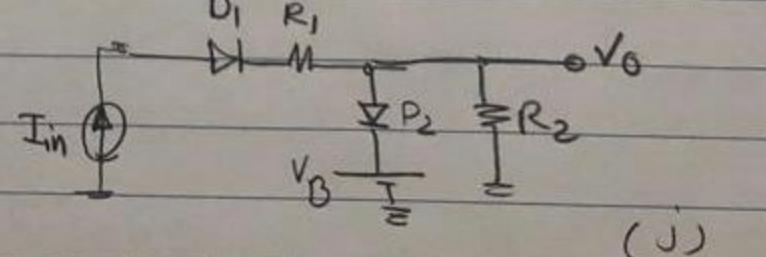 D1 R1
Vo
Iin
D2
R2
VB
(j)